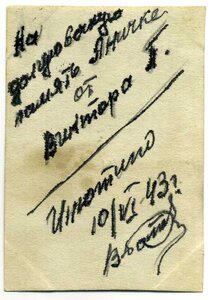 На
долгованую
память Яничке
от
Виктора Г.
Игнатино
10/VI 43 г.